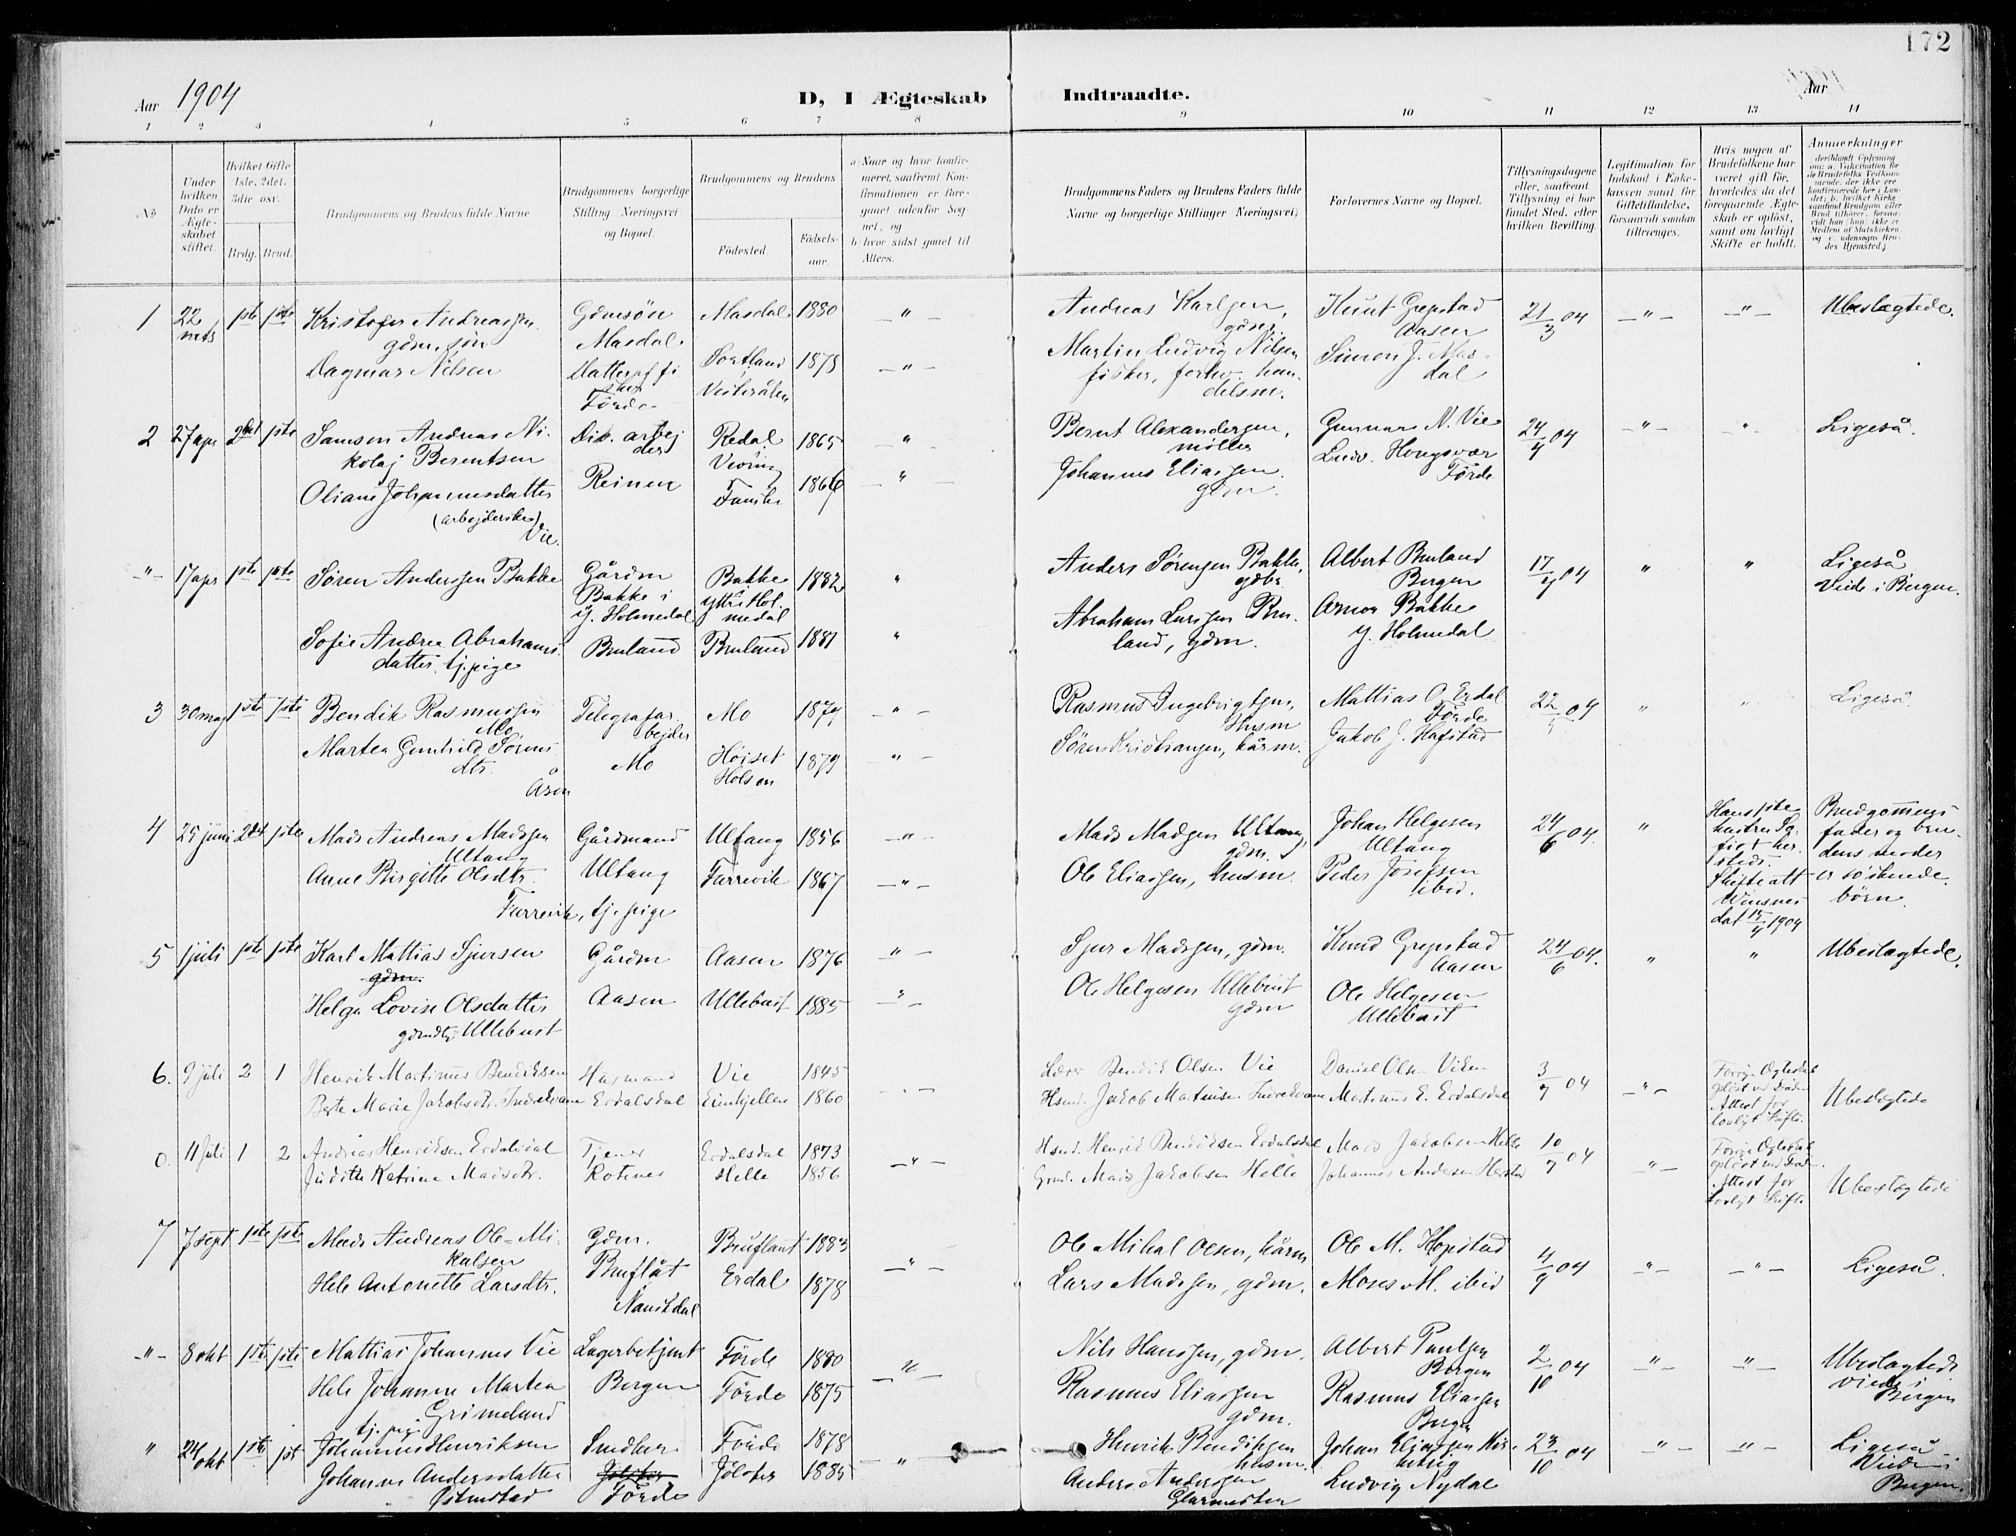 172
Aar 1904
D, I Ægteskab Indtraadte.
Aar
1 2 3 4 5 6 7 8 9 10 11 12 13 14
No
Under hvilken Dato er Ægteskabet stiftet.
Hvilket Gifte 1ste, 2det, 3die osv.
Brdg. Brud.
Brudgommens og Brudens fulde Navne
Brudgommens borgerlige Stilling Næringsvei og Bopæl.
Brudgommens og Brudens
Fødested. Fødselsaar.
a. Naar og hvor konfirmeret, saafremt Konfirmationen er foregaaet udenfor Sognet, og
b hvor sidst gaaet til Alters.
Brudgommens Faders og Brudens Faders fulde Navne og borgerlige Stillinger Næringsvei,
Forlovernes Navne og Bopæl.
Tillysningsdagene eller, saafremt Tillysning ei har fundet Sted, efter hvilken Bevilling.
Legitimation for Indskud i Enkekassen samt for Giftetilladelse, forsaavidt saadan tiltrænges.
Hvis nogen af Brudefolkene har været gift før, hvorledes da det foregaaende Ægteskab er opløst, samt om lovligt Skifte er holdt.
Anmærkninger
1 22 mts 1ste 1ste Kristofer Andreassen gdm. søn Gdmsøn Masdal Masdal 1880 Andreas Karlsen, gdbr. Knut Grepstad Aasen 21/3 04 Ubeslægtede.
Dagmar Nilsen Datter af fisker Førde Sortland Vesterålen 1878 Martin Ludvig Nilsen fisker, forhv. handelsm. Simon J. Masdal
2 27 apr 2det 1ste Samson Andreas Nikolaj Berentsen Div. arbejder Redal Vevring 1865 Bernt Alexandersen, møller Gunnar N. Vie 24/4 04 Ligeså.
Oliane Johannesdatter (arbejderske) Vie. Reinen Fauske 1866 Johannes Eliassen gdm. Ludv. Hongsvær Førde
17 apr 1ste 1ste Søren Anderssen Bakke Gårdm Bakke i Y. Holmedal Bakke Ytre Holmedal 1882 Anders Sørensen Bakke, gdbr. Albert Bruland Bergen 17/4 04 Ligeså Viede i Bergen.
Sofie Andrea Abrahamsdatter, tj. pige Bruland Bruland 1881 Abraham Larssen Bruland, gdm. Arnor Bakke Y. Holmedal
3 30 maj 1ste 1ste Bendik Rasmussen Mo Telegrafarbejder Mo 1874 Rasmus Ingebrigtsen, Husm Mattias O. Erdal Førde 22/5 04 Ligeså.
Martea Gunhild Sørensdtr. Åsen Mo Højset Holsen 1879 Søren Kristiansen, kårm. Jakob J. Hafstad
4 25 juni 2det 1ste Mads Andreas Madssen Ultang Gårdmand Ultang 1856 Mads Madssen Ultang, gdm. Johan Helgesen Ultang 24/6 04. Hans 1ste hustru Sofie † hersteds. Skifteatt dat 15/4 1904 Brudgommens fader og brudens moder er søskende børn.
Anne Birgitte Olsdtr. Farrevik, tj. pige Ultang Farrevik 1867 Ole Eliassen, husm. Peder Josefsen ibid.
5 1 juli 1ste 1ste Karl Mattias Sjursen gdm. Gårdm Aasen 1876 Sjur Madssen, gdm. Knud Grepstad Aasen 24/6 04. Ubeslægtede.
Helga Lovise Olsdatter gdmdtr. Ullebust Aasen Ullebust 1885 Ole Helgesen Ullebust gdm Ole Helgesen Ullebust
6. 9 juli 2 1 Henrik Martinus Bendiksen Husmand Vie 1845 Lærer Bendik Olsen Vie Daniel Olsen Viken 3/7 04 Forrige Ægteskab opløst ved Døden. Attest for lovligt Skifte. Ubeslægtede
Berte Marie Jakobsdtr. Indrekvame Erdalsdal 1860 Husmd. Jakob Martinusen Indrekvame Martinus E. Erdalsdal
0. 11 juli 1 2 Andreas Henriksen Erdalsdal Tjener Erdalsdal 1873 Husmd. Henrik Bendiksen Erdalsdal Mads Jakobsen Helle 10/7 04 Forrige Ægteskab opløst ved Døden. Attest for lovligt Skifte. Ubeslægtede
Judithe Katrine Madsdtr. Rotenes Helle 1856 Grmd. Mads Jakobsen Helle Johannes Andersen
7 7 sept 1ste 1ste Mads Andreas Ole-Mikalsen Gdm. Bruflåt 1883 Ole Mikal Olsen, kårm. Ole M. Hopstad 4/9 04 Ligeså.
Hele Antonette Larsdtr. Bruflåt Naustdal Erdal 1878 Lars Madssen, gdm. Moses M. ibid
8 okt 1ste 1ste Mattias Johannes Vie Lagerbetjent Førde 1880 Nils Hanssen, gdm. Albert Paulsen Bergen 2/10 04 Ubeslægtede viede i Bergen
Hele Johanne Martea Grimeland tj. pige Bergen Førde 1875 Rasmus Eliassen gdm. Rasmus Eliassen Bergen
24 okt 1ste 1ste Johannes Henriksen Snedker Førde 1878 Henrik Bendiksen husm. Johan Eliassen 23/10 04 Ligeså Viede i Bergen.
Johanne Andersdatter Jølster Førde Jølster 1885 Anders Andersen Glarmester Ludvig Nydal